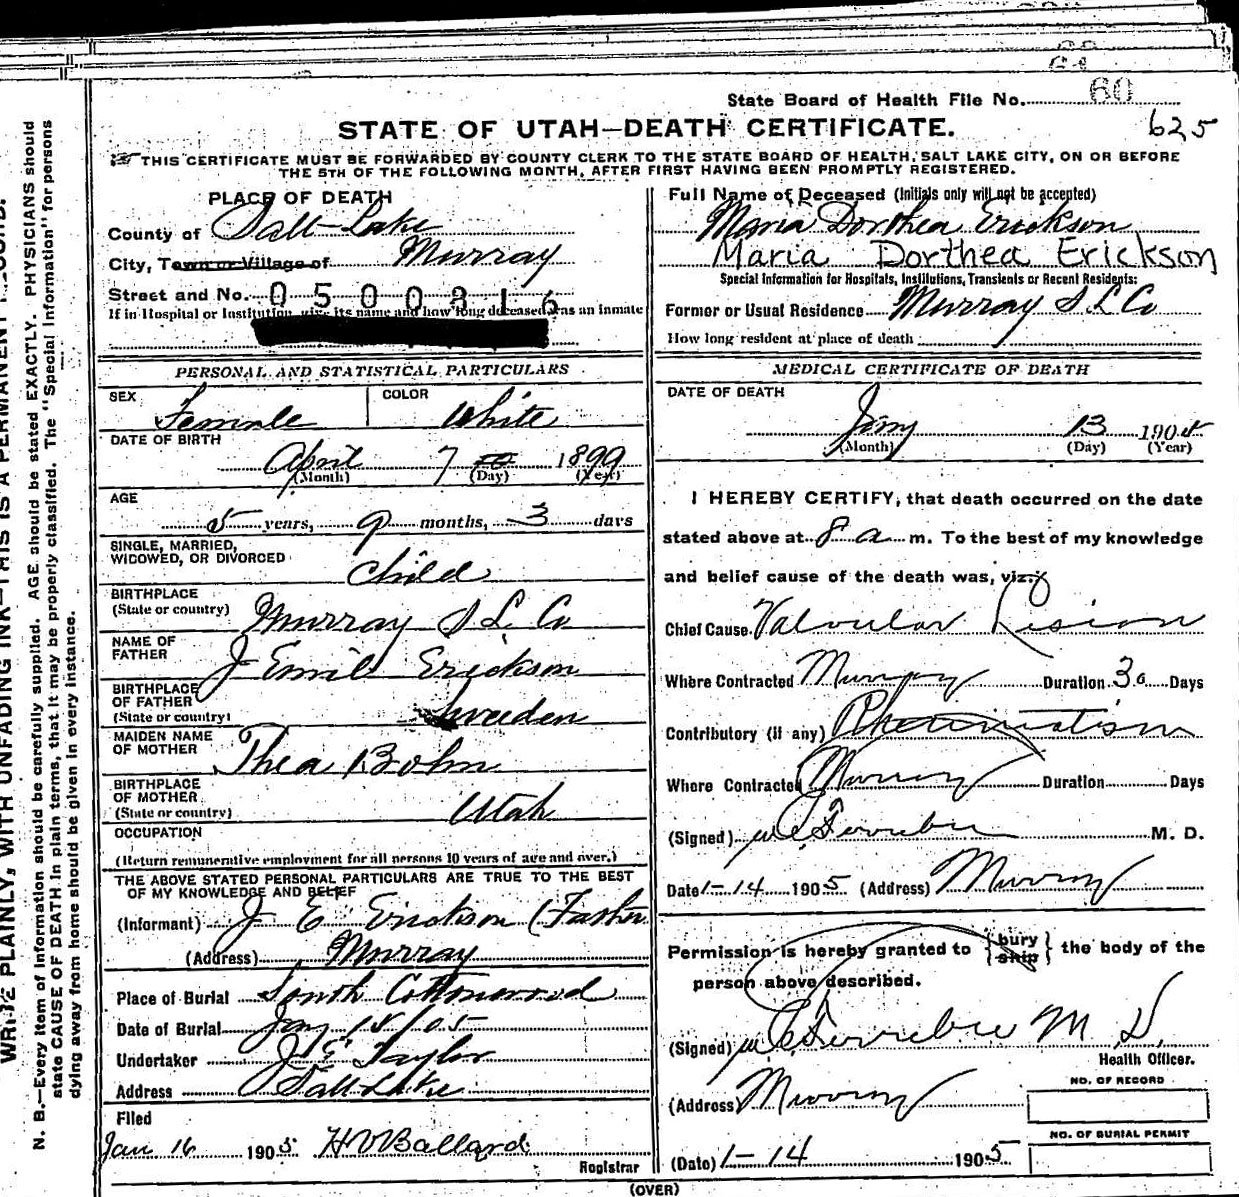 State Board of Health File No. 60
625
STATE OF UTAH—DEATH CERTIFICATE.
THIS CERTIFICATE MUST BE FORWARDED BY COUNTY CLERK TO THE STATE BOARD OF HEALTH, SALT LAKE CITY, ON OR BEFORE
THE 5TH OF THE FOLLOWING MONTH, AFTER FIRST HAVING BEEN PROMPTLY REGISTERED.
WRITE PLAINLY, WITH UNFADING INK—THIS IS A PERMANENT RECORD.
N. B.—Every item of information should be carefully supplied. AGE should be stated EXACTLY. PHYSICIANS should
state CAUSE OF DEATH in plain terms, that it may be properly classified. The "Special Information" for persons
dying away from home should be given in every instance.
PLACE OF DEATH
County of Salt Lake
City, Town or Village of Murray
Street and No. 0500816
If in Hospital or Institution, give its name and how long deceased was an inmate
PERSONAL AND STATISTICAL PARTICULARS
SEX Female COLOR White
DATE OF BIRTH
April 7 1899
(Month) (Day) (Year)
AGE
5 years, 9 months, 3 days
SINGLE, MARRIED,
WIDOWED, OR DIVORCED Child
BIRTHPLACE
(State or country) Murray S L Co
NAME OF
FATHER J Emil Erickson
BIRTHPLACE
OF FATHER
(State or country) Sweeden
MAIDEN NAME
OF MOTHER Thea Bohn
BIRTHPLACE
OF MOTHER
(State or country) Utah
OCCUPATION
(Return remunerative employment for all persons 10 years of age and over.)
THE ABOVE STATED PERSONAL PARTICULARS ARE TRUE TO THE BEST
OF MY KNOWLEDGE AND BELIEF
(Informant) J E Erickson (Father
(Address) Murray
Place of Burial South Cottonwood
Date of Burial Jany 15/05
Undertaker J E Taylor
Address Salt Lake
Filed
Jan 16 1905 H V Ballard
Registrar
Full Name of Deceased (Initials only will not be accepted)
Maria Dorthea Erickson
Maria Dorthea Erickson
Special Information for Hospitals, Institutions, Transients or Recent Residents:
Former or Usual Residence Murray S L Co
How long resident at place of death
MEDICAL CERTIFICATE OF DEATH
DATE OF DEATH
Jany 13 190
(Month) (Day) (Year)
I HEREBY CERTIFY, that death occurred on the date
stated above at 8 a m. To the best of my knowledge
and belief cause of the death was, viz:
Chief Cause Valvular Lesion
Where Contracted Murray Duration 30 Days
Contributory (if any) Rheumatism
Where Contracted Murray Duration Days
(Signed) M. D.
Date 1-14 1905 (Address) Murray
Permission is hereby granted to {bury ship} the body of the
person above described.
(Signed) M D
Health Officer.
(Address) Murray
NO. OF RECORD
NO. OF BURIAL PERMIT
(Date) 1-14 1905
(OVER)